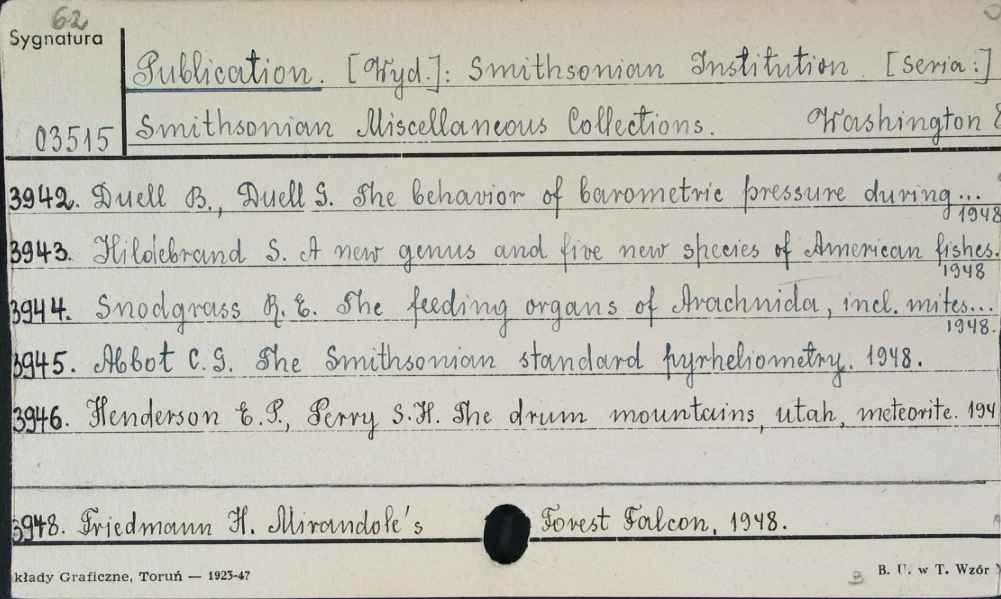 62
Sygnatura
Publication. [Wyd.]: Smithsonian Institution. [Seria:]
03515
Smithsonian Miscellaneous Collections. Washington
3942. Duell B., Duell G. The behavior of barometric pressure during...
1948
3943. Hildebrand S. A new genus and five new species of American fishes.
1948
3944. Snodgrass R. E. The feeding organs of Arachnida, incl. mites...
1948.
3945. Abbot C. G. The Smithsonian standard pyrheliometry. 1948.
3946. Henderson E. P., Perry S. H. The drum mountains, utah, meteorite. 194
3948. Friedmann H. Mirandole's Forest Falcon, 1948.
kłady Graficzne, Toruń — 1923-47
B
B. U. w T. Wzór